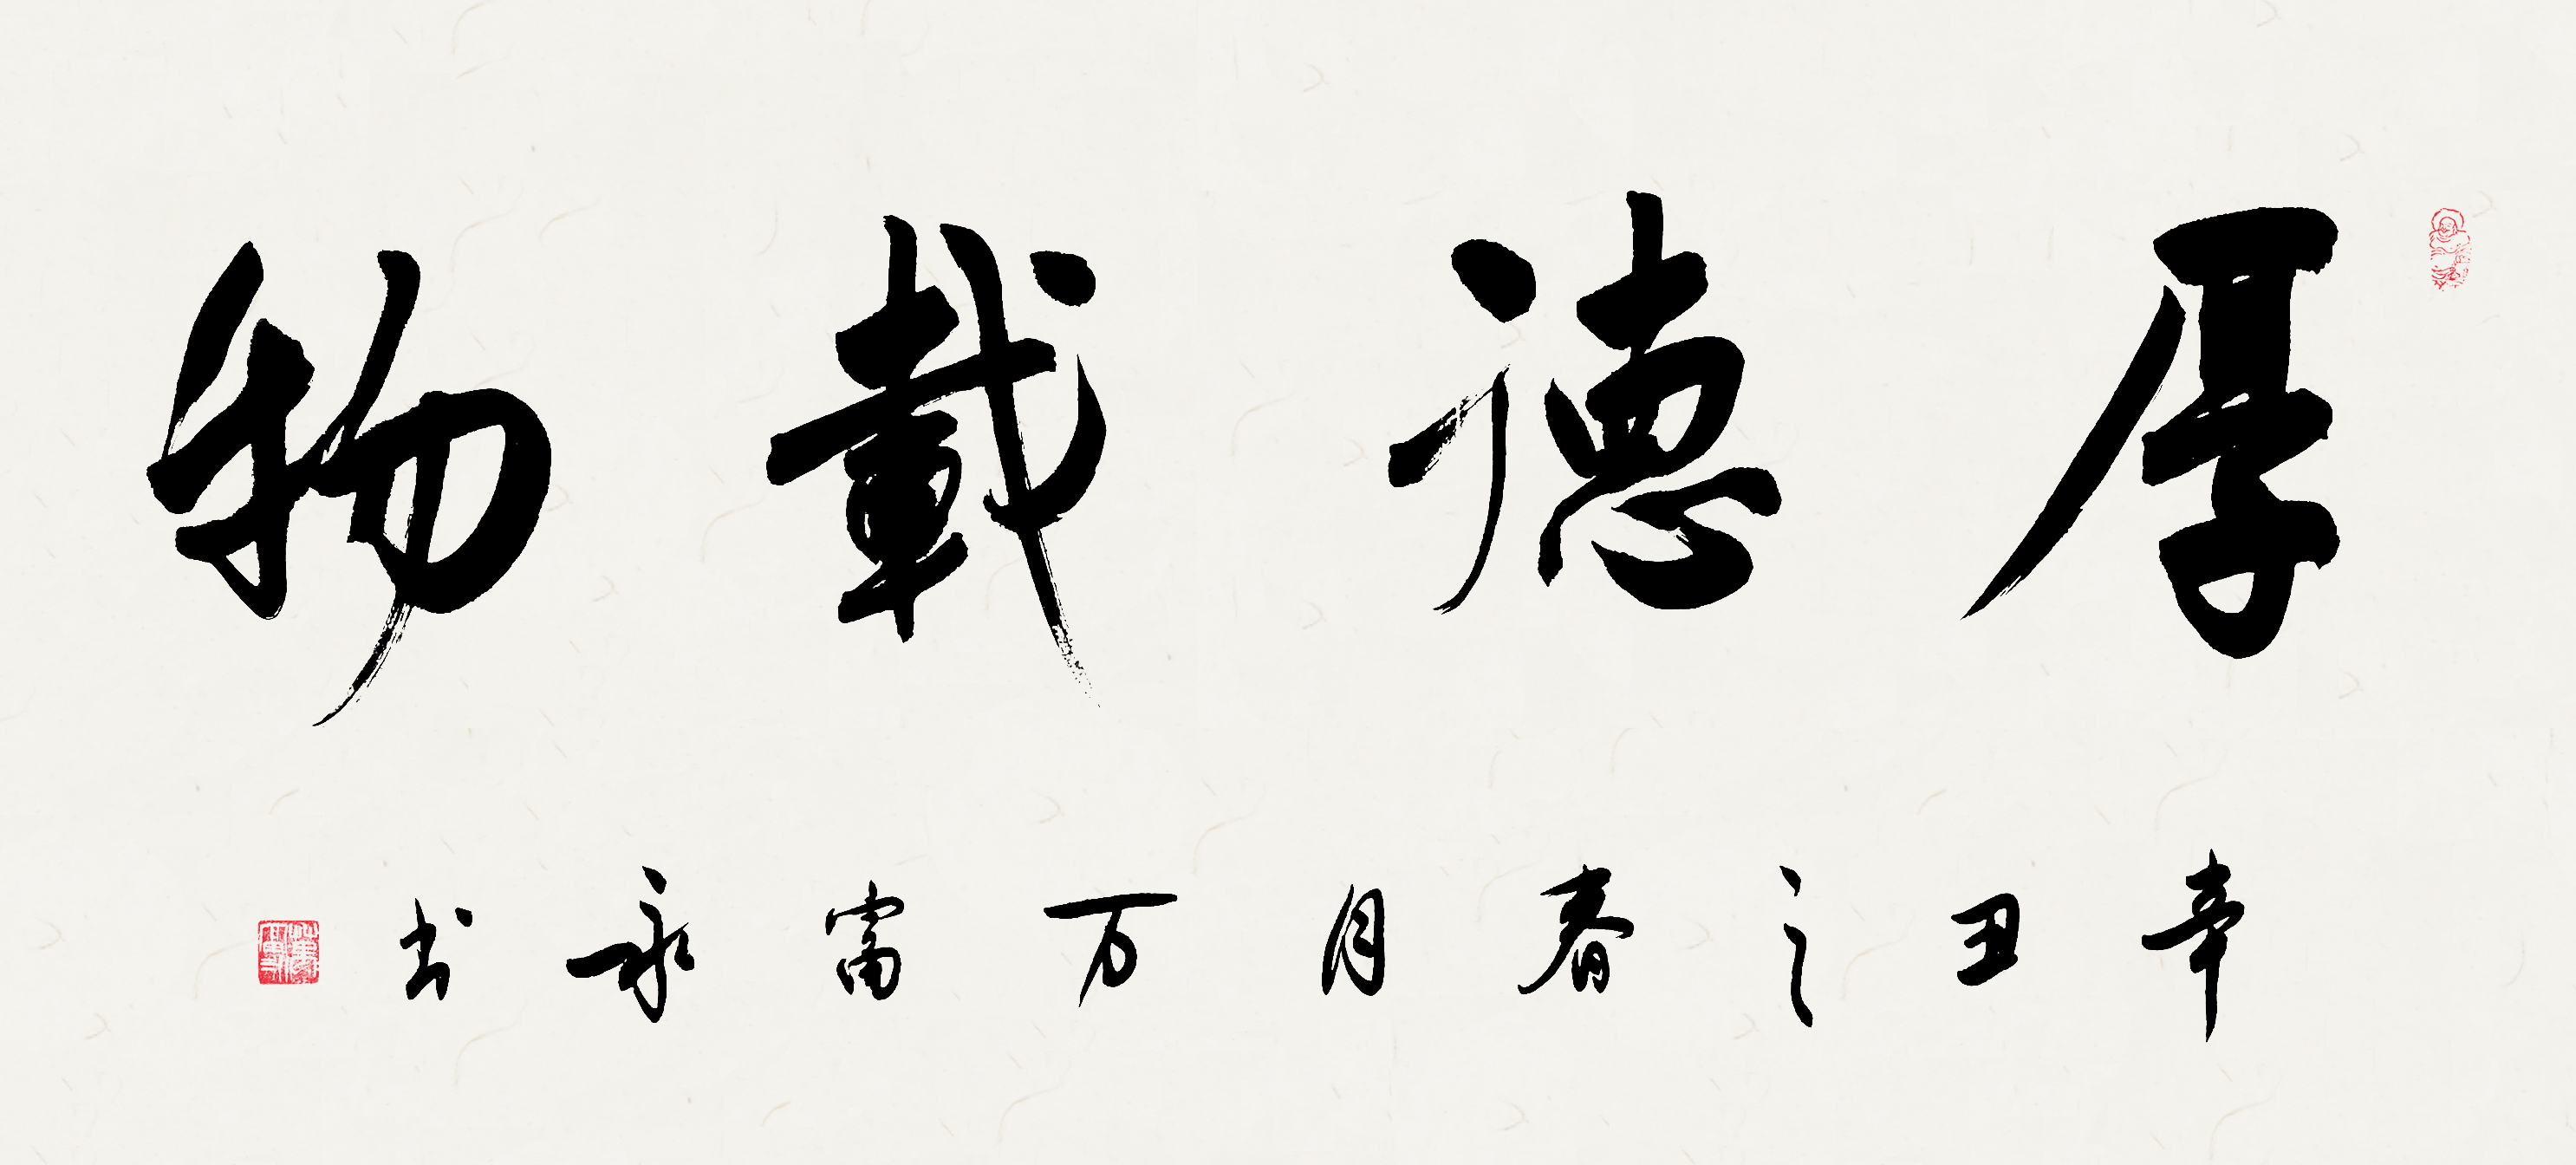 厚德載物
辛丑之春月万富永书